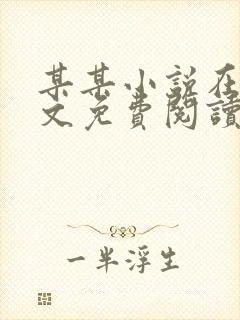 某某小说在
文免費閱讀
一半浮生